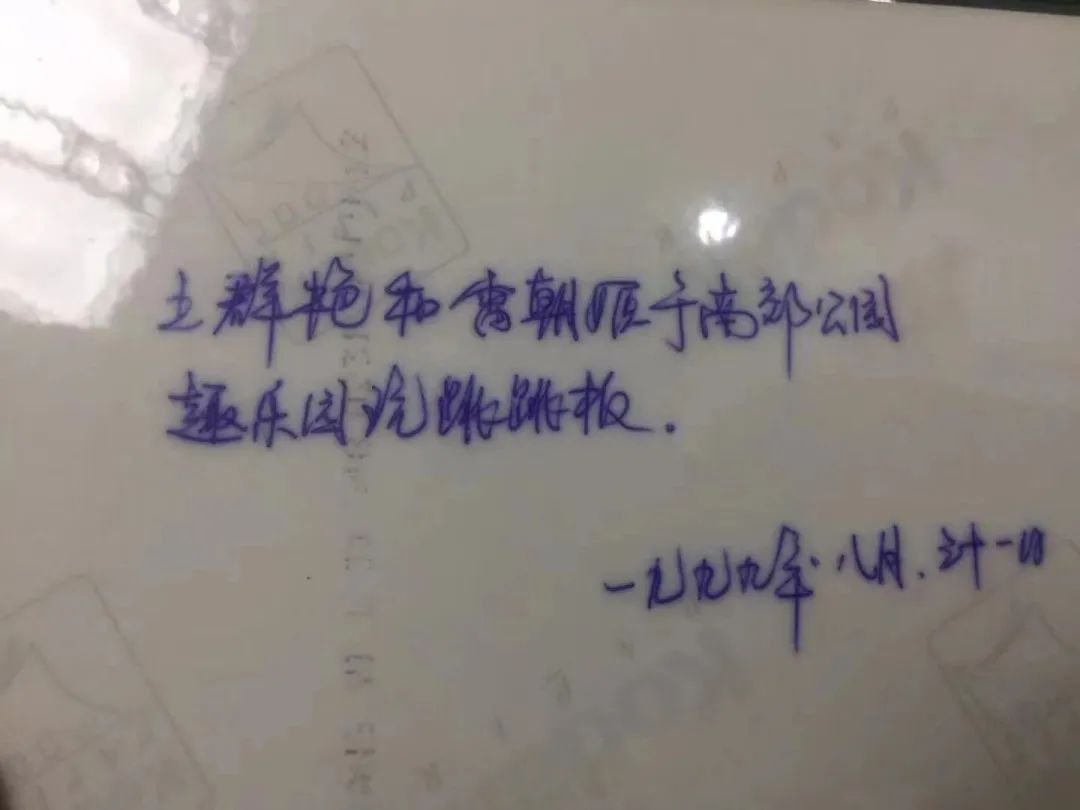 王群艳和雷朝顺于南郊公园
趣乐园玩跳跳板.
一九九九年.八月.二十一日